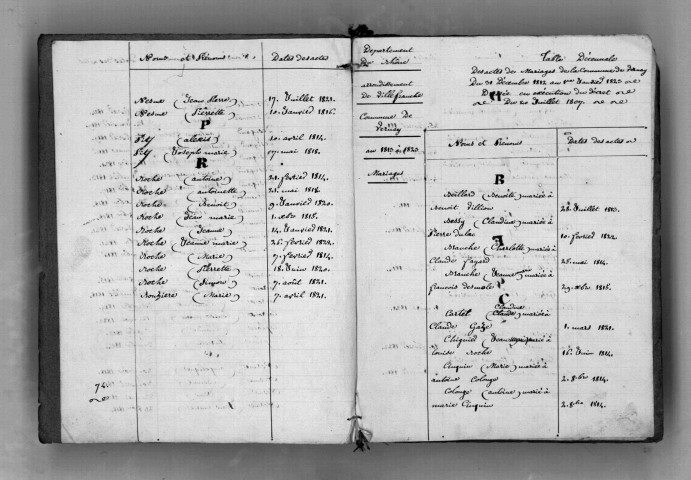 Noms et Prénoms Dates des actes
Nesme (Jean Pierre) 17. Juillet 1821.
Nesme (Pierrette) 10. Janvier 1815.
P
Pity (alexis) 20. avril 1814.
Pity (Joseph marie) 07. mai 1818.
R
Roche (antoine) 21. février 1814.
Roche (antoinette) 21. mai 1818.
Roche (Benoit) 9. Janvier 1820.
Roche (Jean marie) 1. xbre 1815.
Roche (Jeanne) 14. Janvier 1821.
Roche (Jeanne marie) 26. février 1822.
Roche (Marie) 7. février 1814.
Roche (Pierrette) 18. Juin 1820.
Roche (Simon) 7. août 1821.
Ronzière (Marie) 7. avril 1821.
74.
Département
Du Rhône
arrondissement
De Villefranche
Commune de
Vernay
an 1813 à 1823
Mariages
Table Décennale
Des actes de Mariages de la Commune de Vernay
Du 31 Décembre 1812 au 1er Janvier 1823
Dressée en exécution du Décret
Du 20 Juillet 1807.
Noms et Prénoms Dates des actes
B
Beillard (Benoite) mariée à
Benoit Dillion 28. Juillet 1813.
Bessy (Claudine) mariée à
Pierre Dulac 10. février 1822.
Branche (Charlotte) mariée à
Claude fayard 25. mai 1814.
Branche (Jeanne) mariée à
françois desmole 29. xbre 1815.
C
Claudine
Cartet (Claude) mariée à
Claude Gaze 1. mars 1821.
Chignier (Jean marie) marié à
Louise Roche 16. Juin 1814.
Cinquin (Marie) mariée à
antoine Colonge 2. 8bre 1814.
Colonge (antoine) marié à
marie Cinquin 2. 8bre 1814.